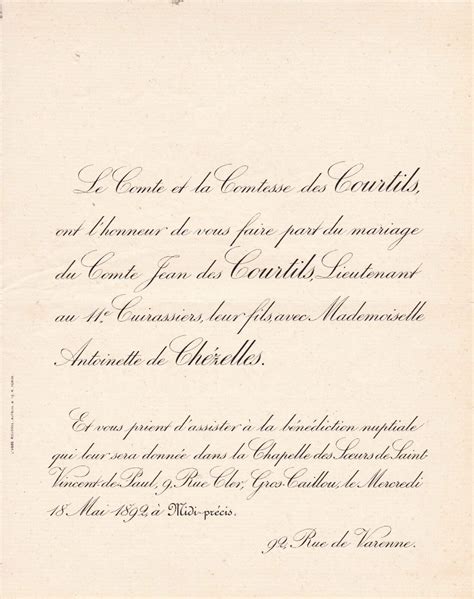 Le Comte et la Comtesse des Courtils,
ont l'honneur de vous faire part du mariage
du Comte Jean des Courtils, Lieutenant
au 11e Cuirassiers, leur fils, avec Mademoiselle
Antoinette de Chézelles.
Et vous prient d'assister à la bénédiction nuptiale
qui leur sera donnée dans la Chapelle des Sœurs de Saint
Vincent-de-Paul, 9, Rue Cler, Gros-Caillou, le Mercredi
18 Mai 1892, à Midi-précis.
92, Rue de Varenne.